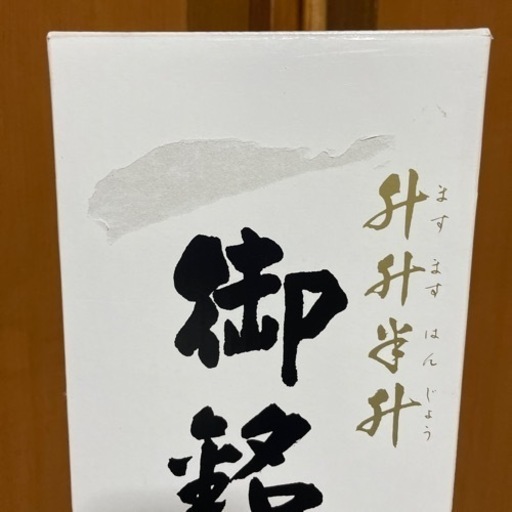 升升半升
ます ます はん じょう
御銘